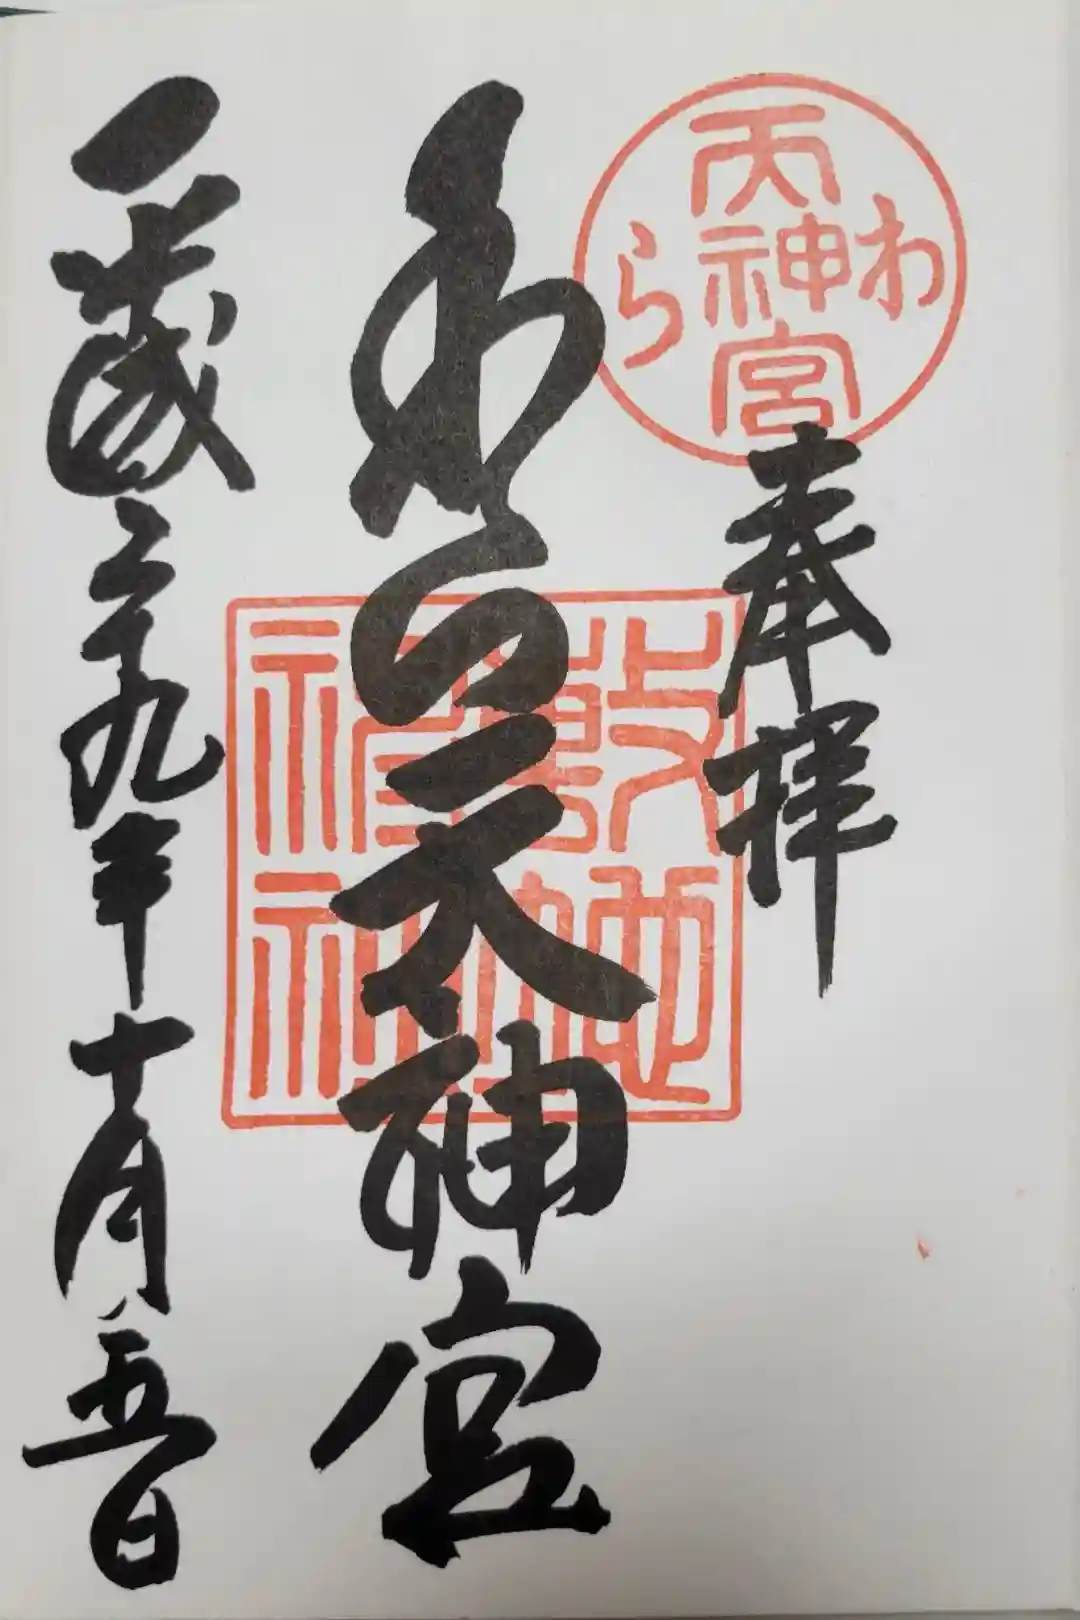 わ
天神宮
ら
奉拝
敷地
神社
わら天神宮
平成二十九年十月五日